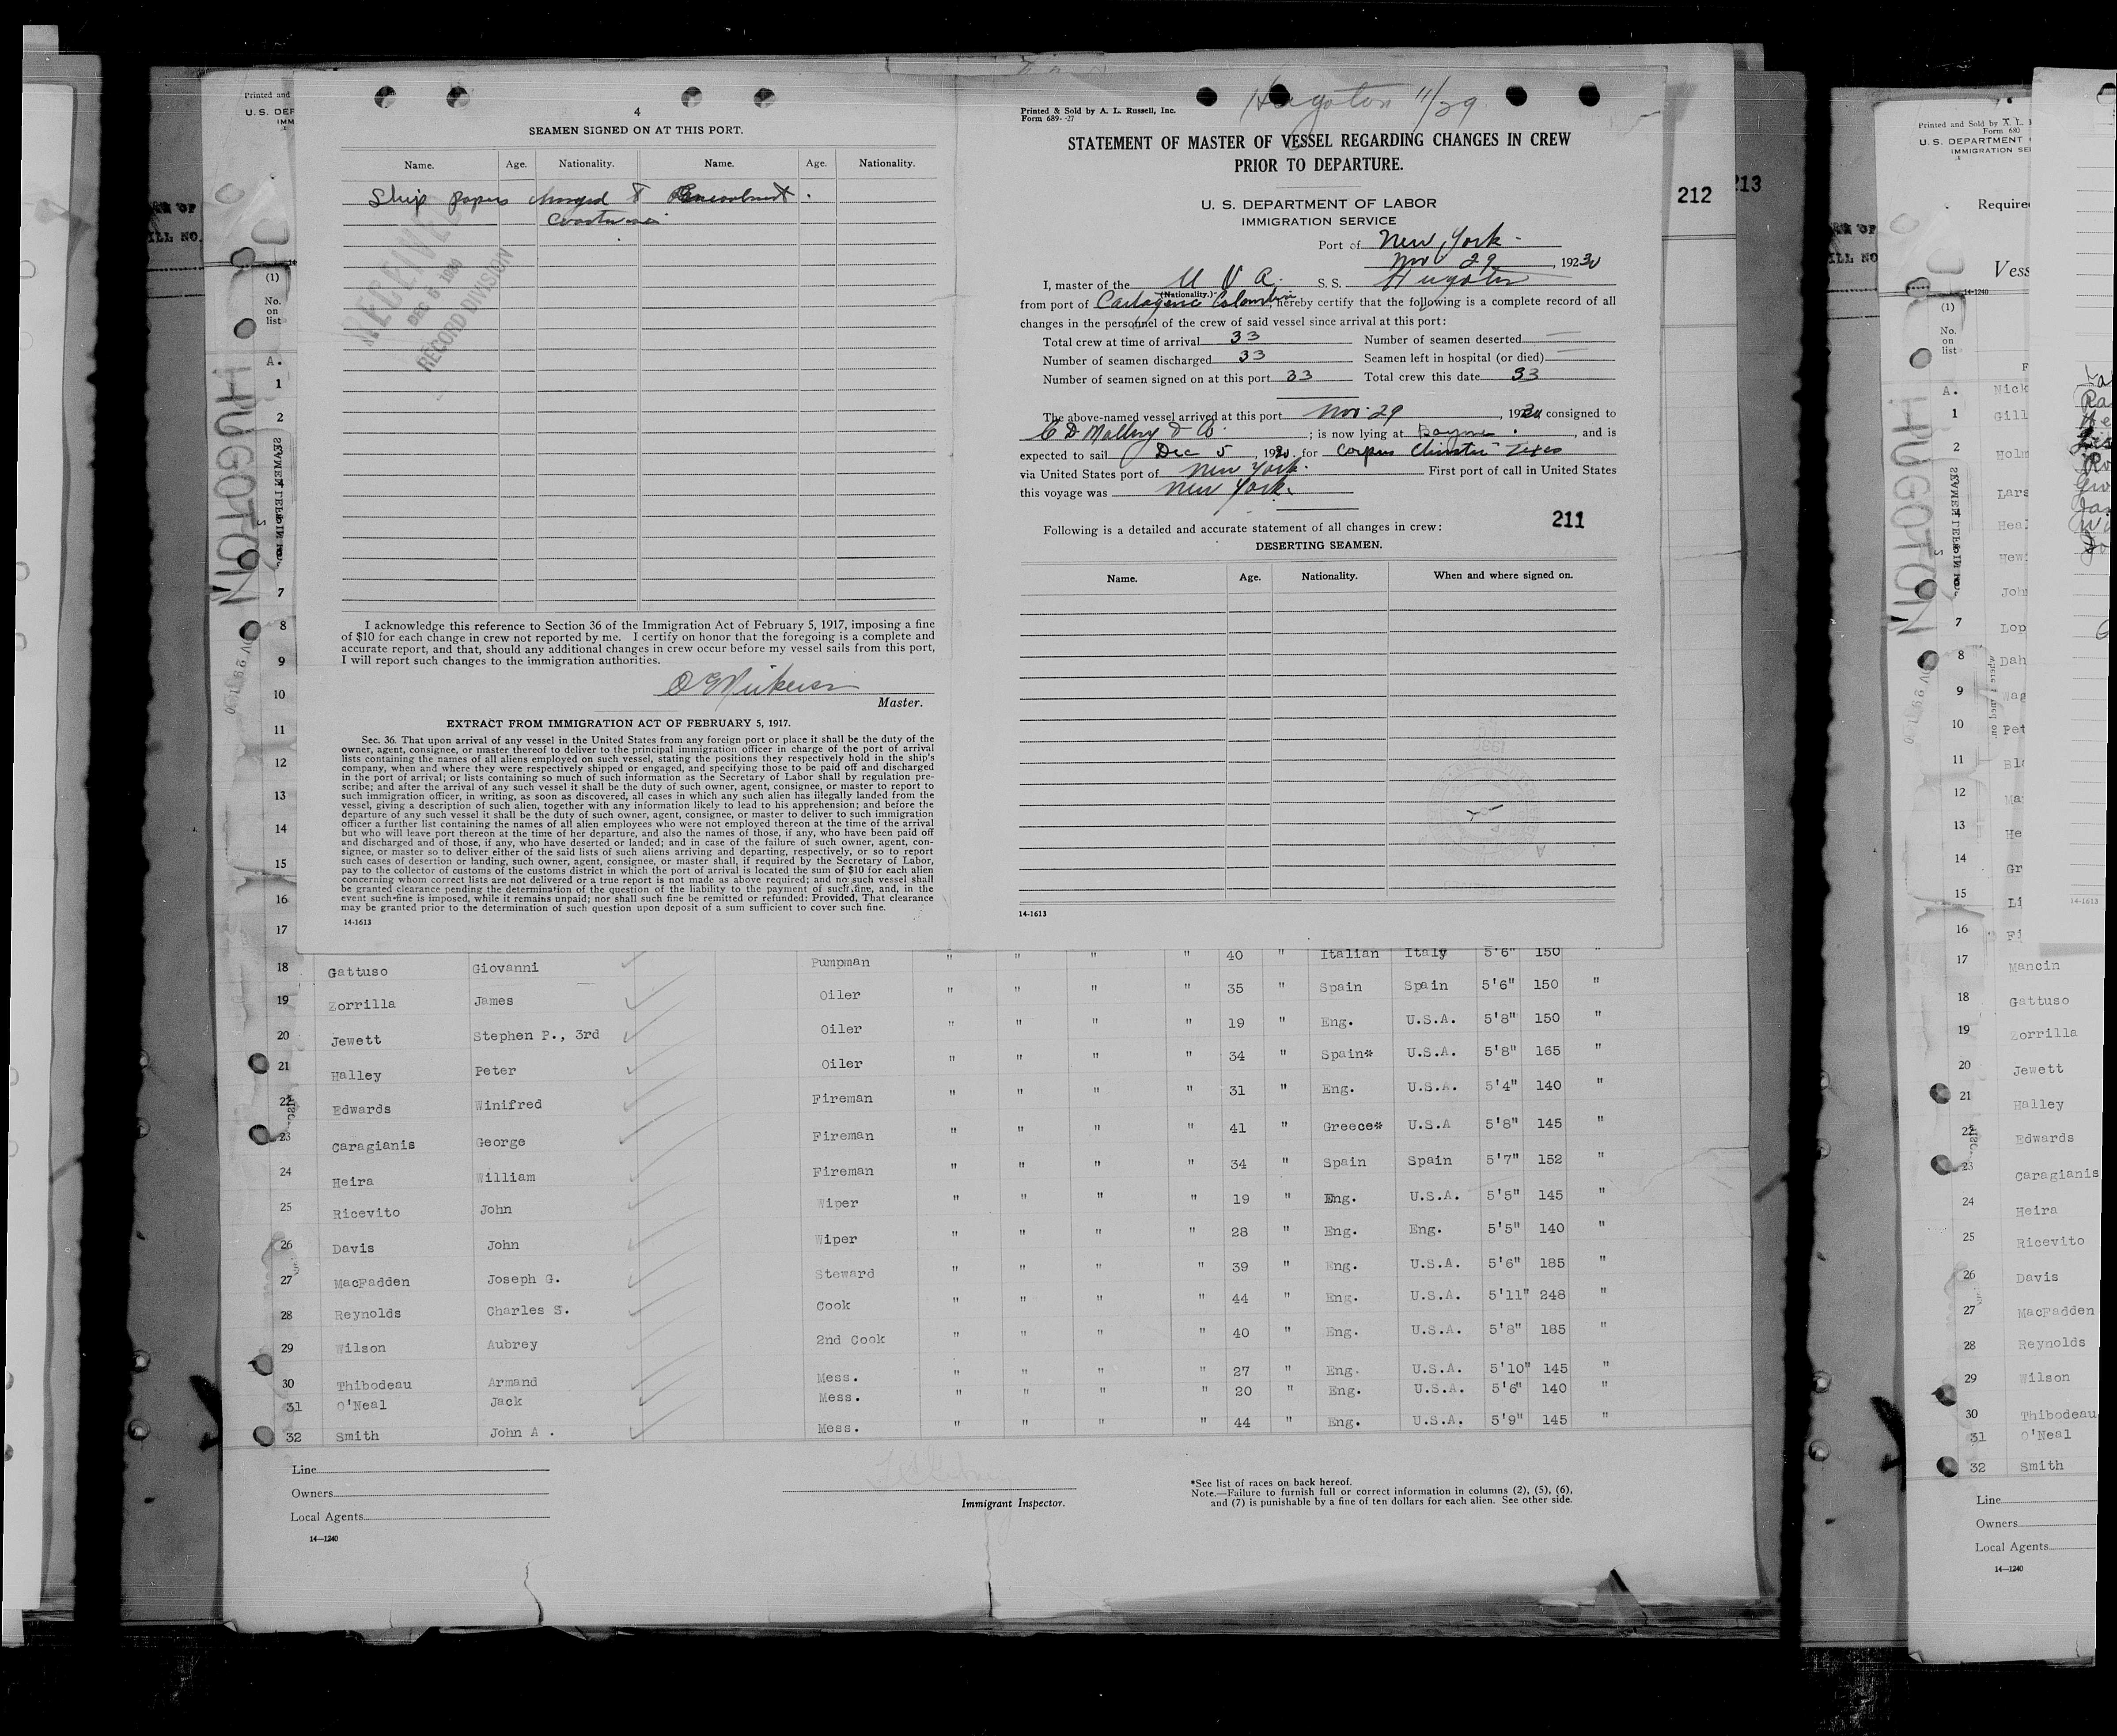 4
SEAMEN SIGNED ON AT THIS PORT.
Name. Age. Nationality. Name. Age. Nationality.
Ship papers changed
RECEIVED
DEC 6 1930
RECORD DIVISION
I acknowledge this reference to Section 36 of the Immigration Act of February 5, 1917, imposing a fine
of $10 for each change in crew not reported by me. I certify on honor that the foregoing is a complete and
accurate report, and that, should any additional changes in crew occur before my vessel sails from this port,
I will report such changes to the immigration authorities.
Master.
EXTRACT FROM IMMIGRATION ACT OF FEBRUARY 5, 1917.
Sec. 36. That upon arrival of any vessel in the United States from any foreign port or place it shall be the duty of the
owner, agent, consignee, or master thereof to deliver to the principal immigration officer in charge of the port of arrival
lists containing the names of all aliens employed on such vessel, stating the positions they respectively hold in the ship's
company, when and where they were respectively shipped or engaged, and specifying those to be paid off and discharged
in the port of arrival; or lists containing so much of such information as the Secretary of Labor shall by regulation pre-
scribe; and after the arrival of any such vessel it shall be the duty of such owner, agent, consignee, or master to report to
such immigration officer, in writing, as soon as discovered, all cases in which any such alien has illegally landed from the
vessel, giving a description of such alien, together with any information likely to lead to his apprehension; and before the
departure of any such vessel it shall be the duty of such owner, agent, consignee, or master to deliver to such immigration
officer a further list containing the names of all alien employees who were not employed thereon at the time of the arrival
but who will leave port thereon at the time of her departure, and also the names of those, if any, who have been paid off
and discharged and of those, if any, who have deserted or landed; and in case of the failure of such owner, agent, con-
signee, or master so to deliver either of the said lists of such aliens arriving and departing, respectively, or so to report
such cases of desertion or landing, such owner, agent, consignee, or master shall, if required by the Secretary of Labor,
pay to the collector of customs of the customs district in which the port of arrival is located the sum of $10 for each alien
concerning whom correct lists are not delivered or a true report is not made as above required; and no such vessel shall
be granted clearance pending the determination of the question of the liability to the payment of such fine, and, in the
event such fine is imposed, while it remains unpaid; nor shall such fine be remitted or refunded: Provided, That clearance
may be granted prior to the determination of such question upon deposit of a sum sufficient to cover such fine.
14-1613
Hugoton 11/29
Printed & Sold by A. L. Russell, Inc.
Form 689- -27
STATEMENT OF MASTER OF VESSEL REGARDING CHANGES IN CREW
PRIOR TO DEPARTURE.
U. S. DEPARTMENT OF LABOR
IMMIGRATION SERVICE
Port of New York
Nov 29, 1930
I, master of the S. S. Hugoton
(Nationality.)
from port of Cartagena Colombia, hereby certify that the following is a complete record of all
changes in the personnel of the crew of said vessel since arrival at this port:
Total crew at time of arrival 33 Number of seamen deserted
Number of seamen discharged 33 Seamen left in hospital (or died)
Number of seamen signed on at this port 33 Total crew this date 33
The above-named vessel arrived at this port Nov. 29, 1930 consigned to
C D Mallory & Co ; is now lying at Bayonne, and is
expected to sail Dec 5, 1930 for Corpus Christi Texas
via United States port of New York. First port of call in United States
this voyage was New York.
211
Following is a detailed and accurate statement of all changes in crew:
DESERTING SEAMEN.
Name. Age. Nationality. When and where signed on.
14-1613
212
213
HUGOTON
(1)
No.
on
list
A.
1
2
7
8
9
10
11
12
13
14
15
16
17
18 Gattuso Giovanni Pumpman " " " " 40 " Italian Italy 5'6" 150 "
19 Zorrilla James Oiler " " " " 35 " Spain Spain 5'6" 150 "
20 Jewett Stephen P., 3rd Oiler " " " " 19 " Eng. U.S.A. 5'8" 150 "
21 Halley Peter Oiler " " " " 34 " Spain* U.S.A. 5'8" 165 "
22 Edwards Winifred Fireman " " " " 31 " Eng. U.S.A. 5'4" 140 "
23 Caragianis George Fireman " " " " 41 " Greece* U.S.A 5'8" 145 "
24 Heira William Fireman " " " " 34 " Spain Spain 5'7" 152 "
25 Ricevito John Wiper " " " " 19 " Eng. U.S.A. 5'5" 145 "
26 Davis John Wiper " " " " 28 " Eng. Eng. 5'5" 140 "
27 MacFadden Joseph G. Steward " " " " 39 " Eng. U.S.A. 5'6" 185 "
28 Reynolds Charles S. Cook " " " " 44 " Eng. U.S.A. 5'11" 248 "
29 Wilson Aubrey 2nd Cook " " " " 40 " Eng. U.S.A. 5'8" 185 "
30 Thibodeau Armand Mess. " " " " 27 " Eng. U.S.A. 5'10" 145 "
31 O'Neal Jack Mess. " " " " 20 " Eng. U.S.A. 5'6" 140 "
32 Smith John A . Mess. " " " " 44 " Eng. U.S.A. 5'9" 145 "
Line
Owners
Local Agents
14—1240
Immigrant Inspector.
*See list of races on back hereof.
Note.—Failure to furnish full or correct information in columns (2), (5), (6),
and (7) is punishable by a fine of ten dollars for each alien. See other side.
Printed and Sold by A. L.
Form 680
U. S. DEPARTMENT
IMMIGRATION
Required
14-1240
HUGOTON
(1)
No.
on
list
A. Nick
1 Gill
2 Holm
Lars
Heal
Hew
John
7 Lop
8 Dah
9 Wag
10 Pet
11 Bla
12
13 He
14 Gr
15 Li
16 Fi
17 Mancin
18 Gattuso
19 Zorrilla
20 Jewett
21 Halley
22 Edwards
23 Caragianis
24 Heira
25 Ricevito
26 Davis
27 MacFadden
28 Reynolds
29 Wilson
30 Thibodeau
31 O'Neal
32 Smith
Line
Owners
Local Agents
14—1240
14-1613